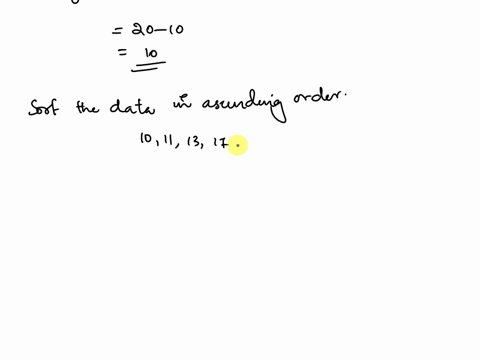 = 20-10
= 10
Sort the data in ascending order.
10, 11, 13, 17